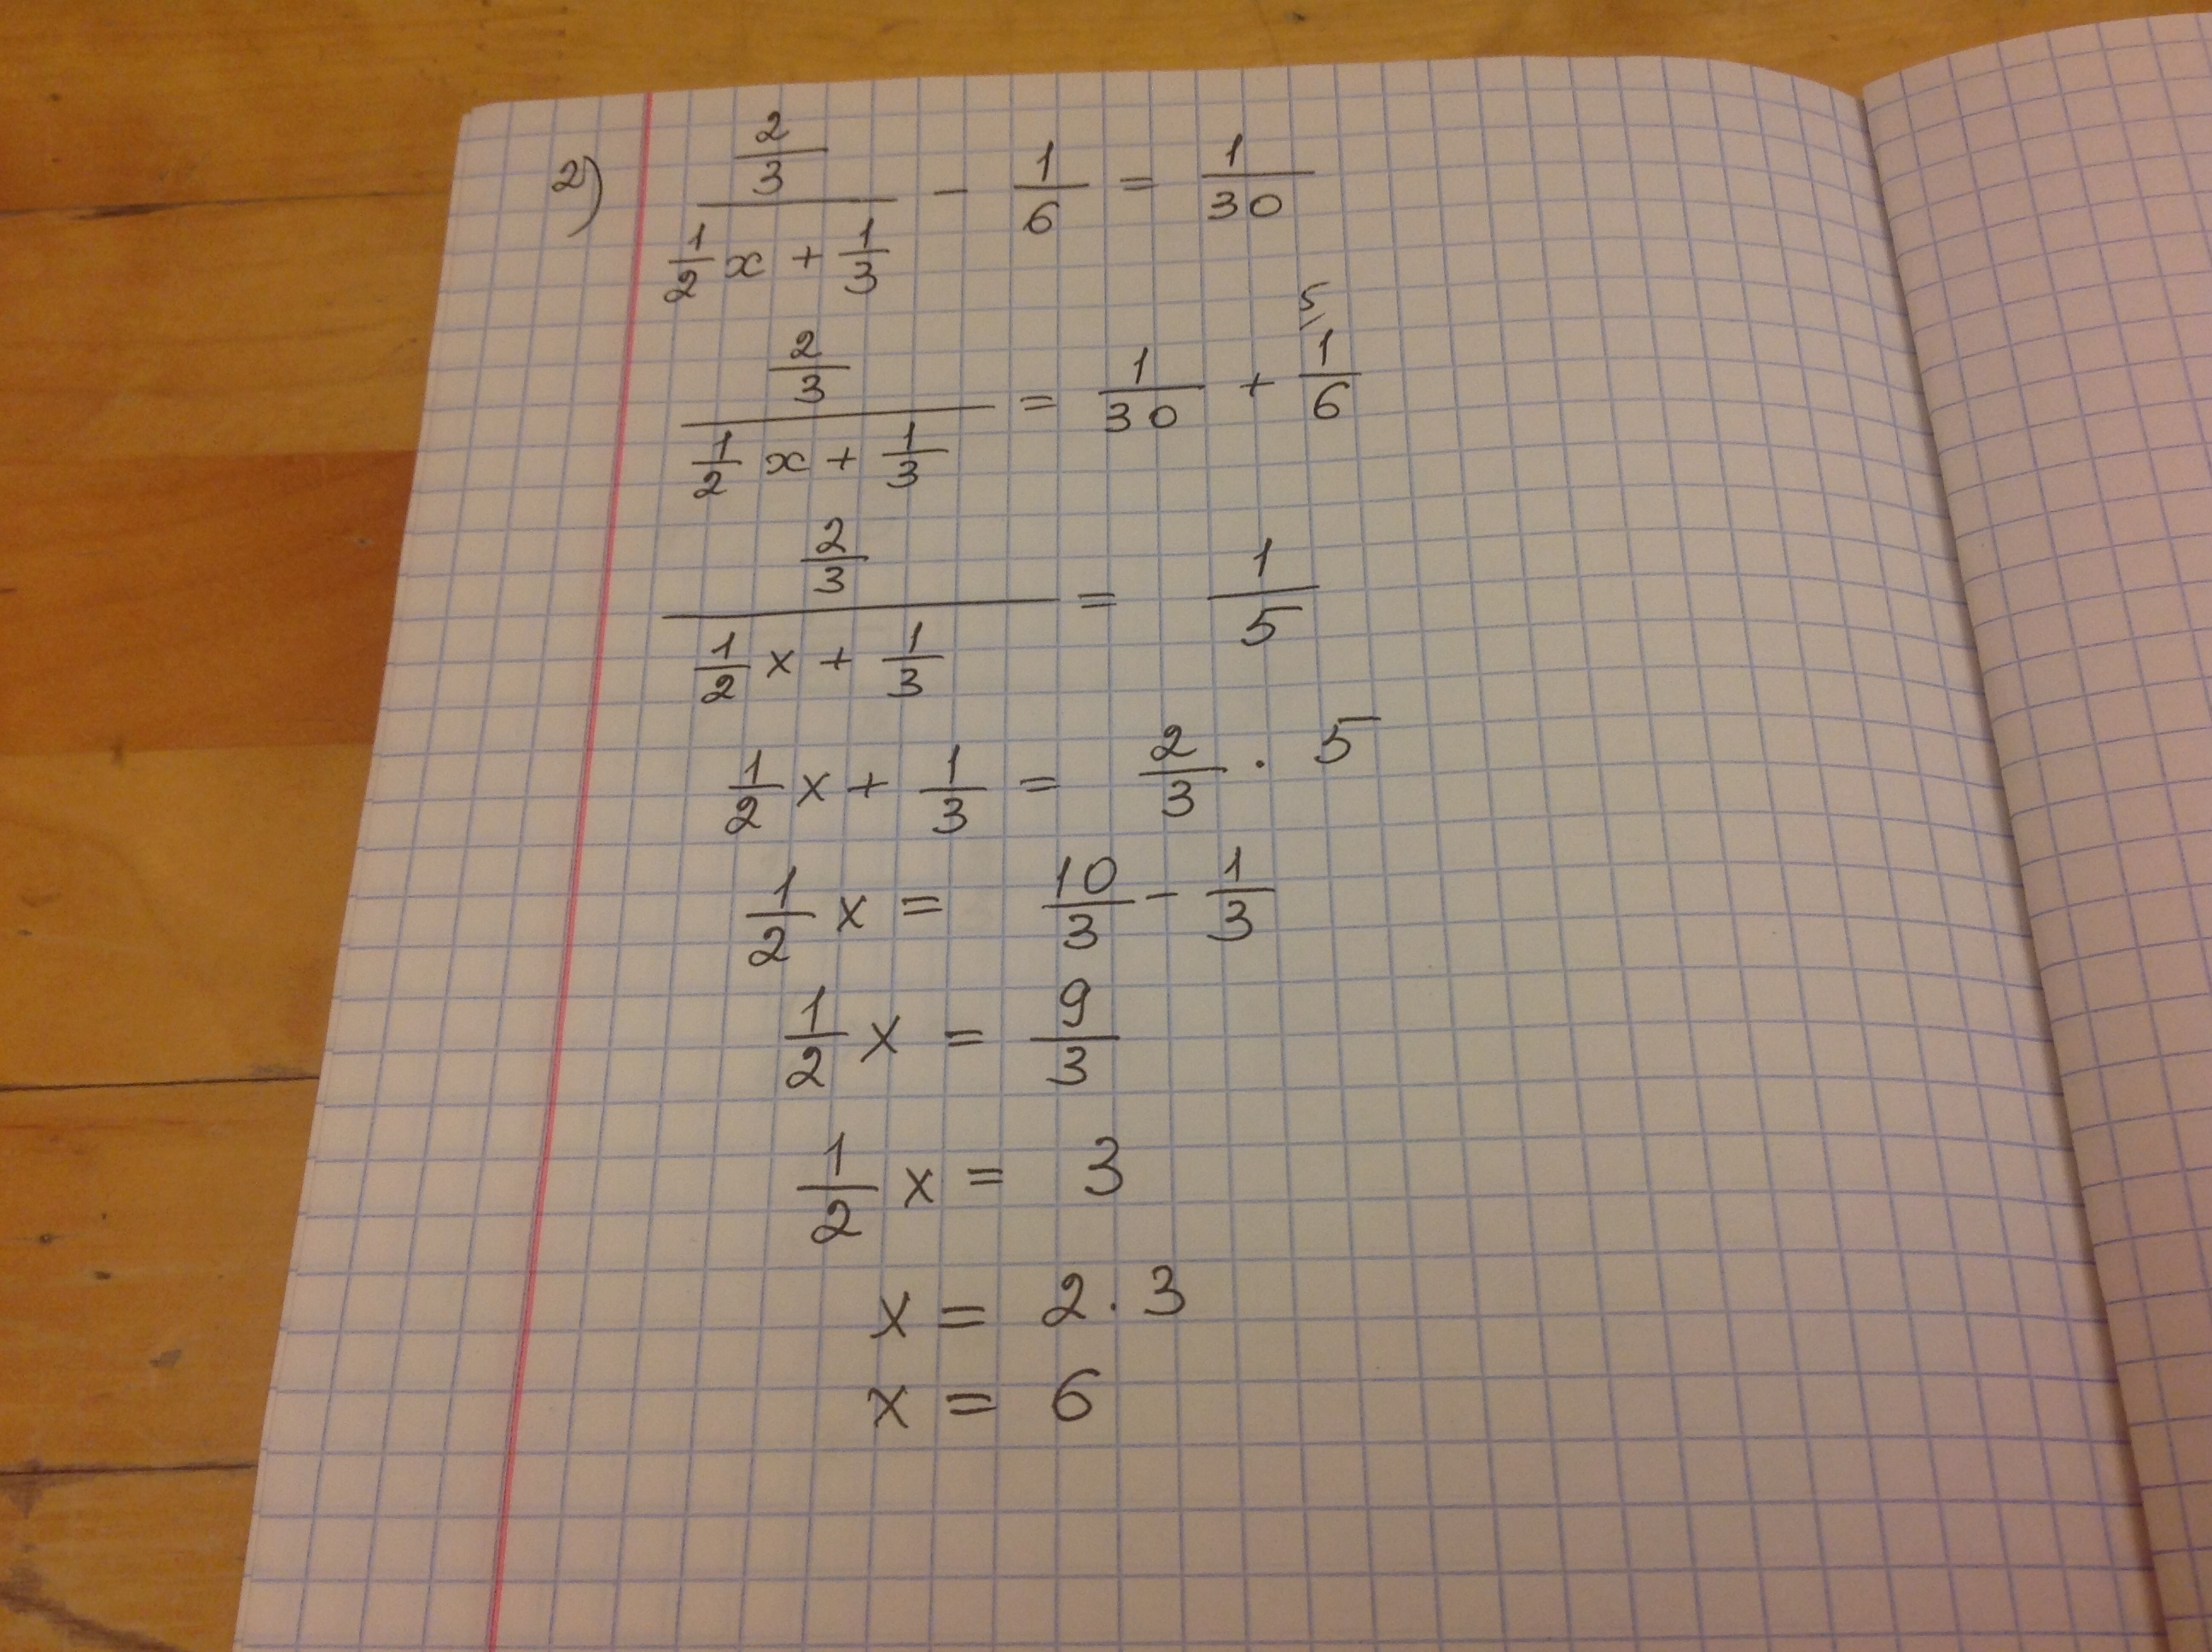 2) (2/3)/(1/2 x + 1/3) - 1/6 = 1/30
(2/3)/(1/2 x + 1/3) = 1/30 + 5\ 1/6
(2/3)/(1/2 x + 1/3) = 1/5
1/2 x + 1/3 = 2/3 · 5
1/2 x = 10/3 - 1/3
1/2 x = 9/3
1/2 x = 3
x = 2 · 3
x = 6